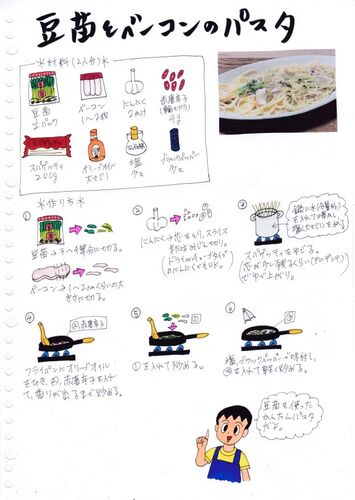 豆苗とベーコンのパスタ
*材料(2人分)*
豆苗
1パック
ベーコン
1〜2枚
にんにく
2かけ
赤唐辛子
(輪切り)
4g
スパゲッティ
200g
オリーブオイル
大さじ2
塩
少々
ブラックペッパー
少々
*作り方*
①
豆苗→3〜4等分に切る。
ベーコン→1〜2cmくらいの大
きさに切る。
②
にんにく→芯をとり、スライス
またはみじん切り。
(ドライorチューブタイプ
のにんにくでもOK。)
③
鍋に水(分量外)
を入れて沸かし、
塩大さじ1を入れる
スパゲッティをゆでる。
芯が少し残るくらい(アルデンテ)
でゆで上がり。
④
②,赤唐辛子
フライパンにオリーブオイル
をひき、②,赤唐辛子を入れ
て、香りが出るまで炒める。
⑤
①を入れて炒める。
⑥
塩,ブラックペッパーで味付し、
③を入れて軽く炒める。
豆苗を使った
かんたんパスタ
だよ。